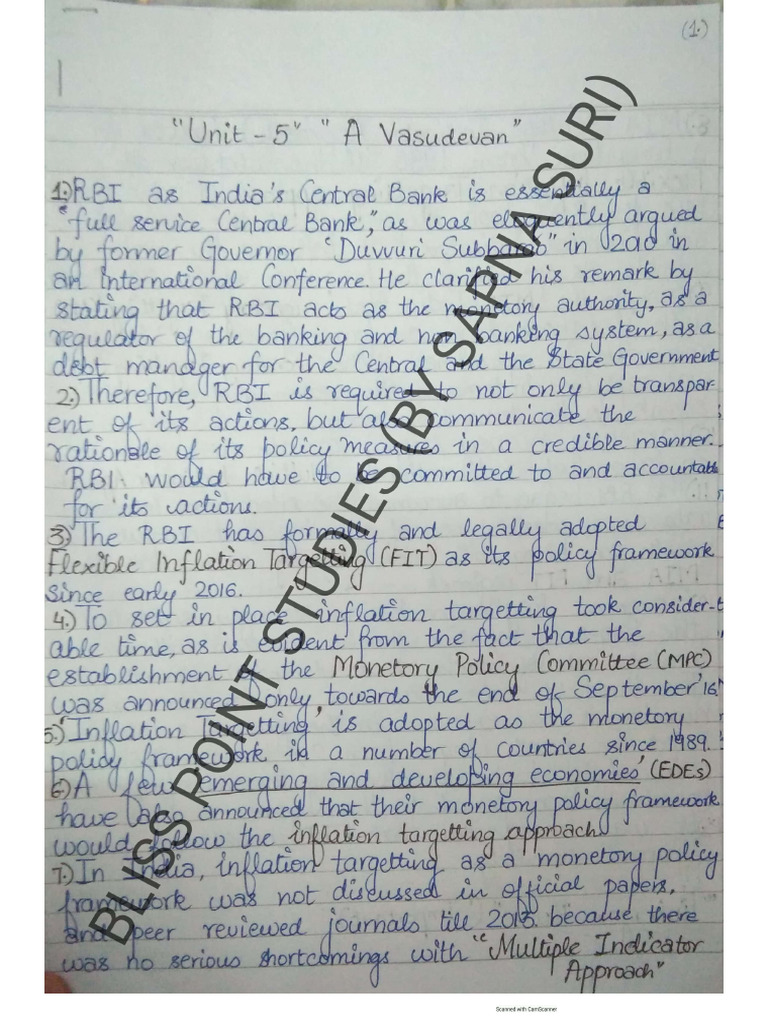 (1.)
"Unit - 5" " A Vasudevan"
1.) RBI as India's Central Bank is essentially a
"full service Central Bank," as was eloquently argued
by former Governor "Duvvuri Subbarao" in 2010 in
an International Conference. He clarified his remark by
stating that RBI acts as the monetory authority, as a
regulator of the banking and non banking system, as a
debt manager for the Central and the State Government
2.) Therefore, RBI is required to not only be transpar-
ent of its actions, but also communicate the
rationale of its policy measures in a credible manner.
RBI would have to be committed to and accountable
for its actions.
3.) The RBI has formally and legally adopted
Flexible Inflation Targetting (FIT) as its policy framework
since early 2016.
4.) To set in place inflation targetting took consider-
able time, as is evident from the fact that the
establishment of the Monetory Policy Committee (MPC)
was announced only towards the end of September '16.
5.) 'Inflation Targetting' is adopted as the monetory
policy framework in a number of countries since 1989.
6.) A few emerging and developing economies' (EDEs)
have also announced that their monetory policy framework
would follow the inflation targetting approach
7.) In India, inflation targetting as a monetory policy
framework was not discussed in official papers,
and peer reviewed journals till 2013. because there
was no serious shortcomings with "Multiple Indicator
Approach"
BLISS POINT STUDIES (BY SAPNA SURI)
Scanned with CamScanner